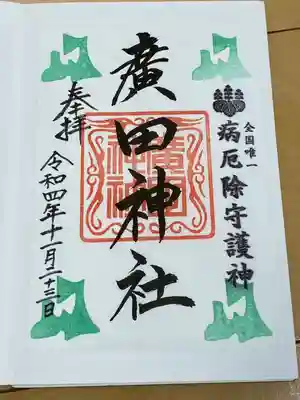 全国唯一
病厄除守護神
廣田神社
奉拝
令和四年十一月二十三日
廣田
神社